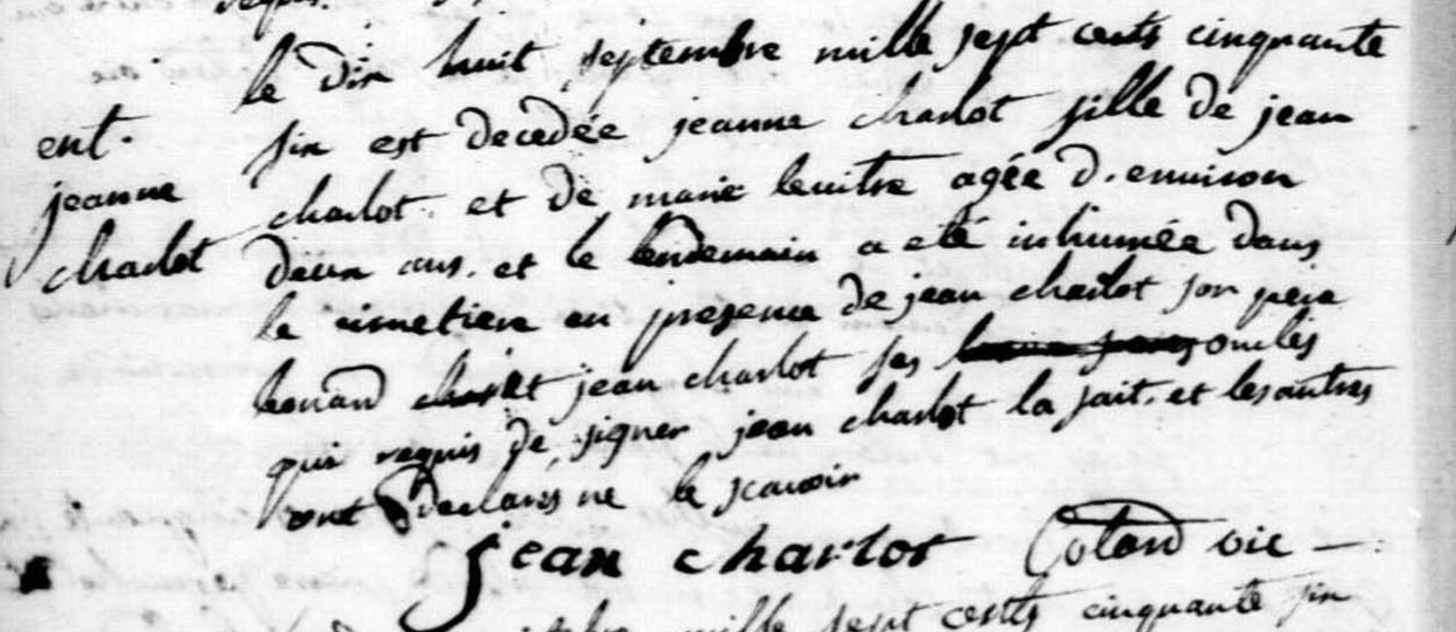 le dix huit septembre mille sept cents cinquante
six est decedée jeanne charlot fille de jean
charlot. et de marie lenitre agée d.environ
deux ans. et le lendemain a eté inhumée dans
le cimetiere en presence de jean charlot son pere
leonard charlot jean charlot ses oncles
qui requis de signer jean charlot la fait. et les autres
ont declarés ne le scavoir
jean charlot Cotard vic
ent.
jeanne
charlot
mille sept cents cinquante six